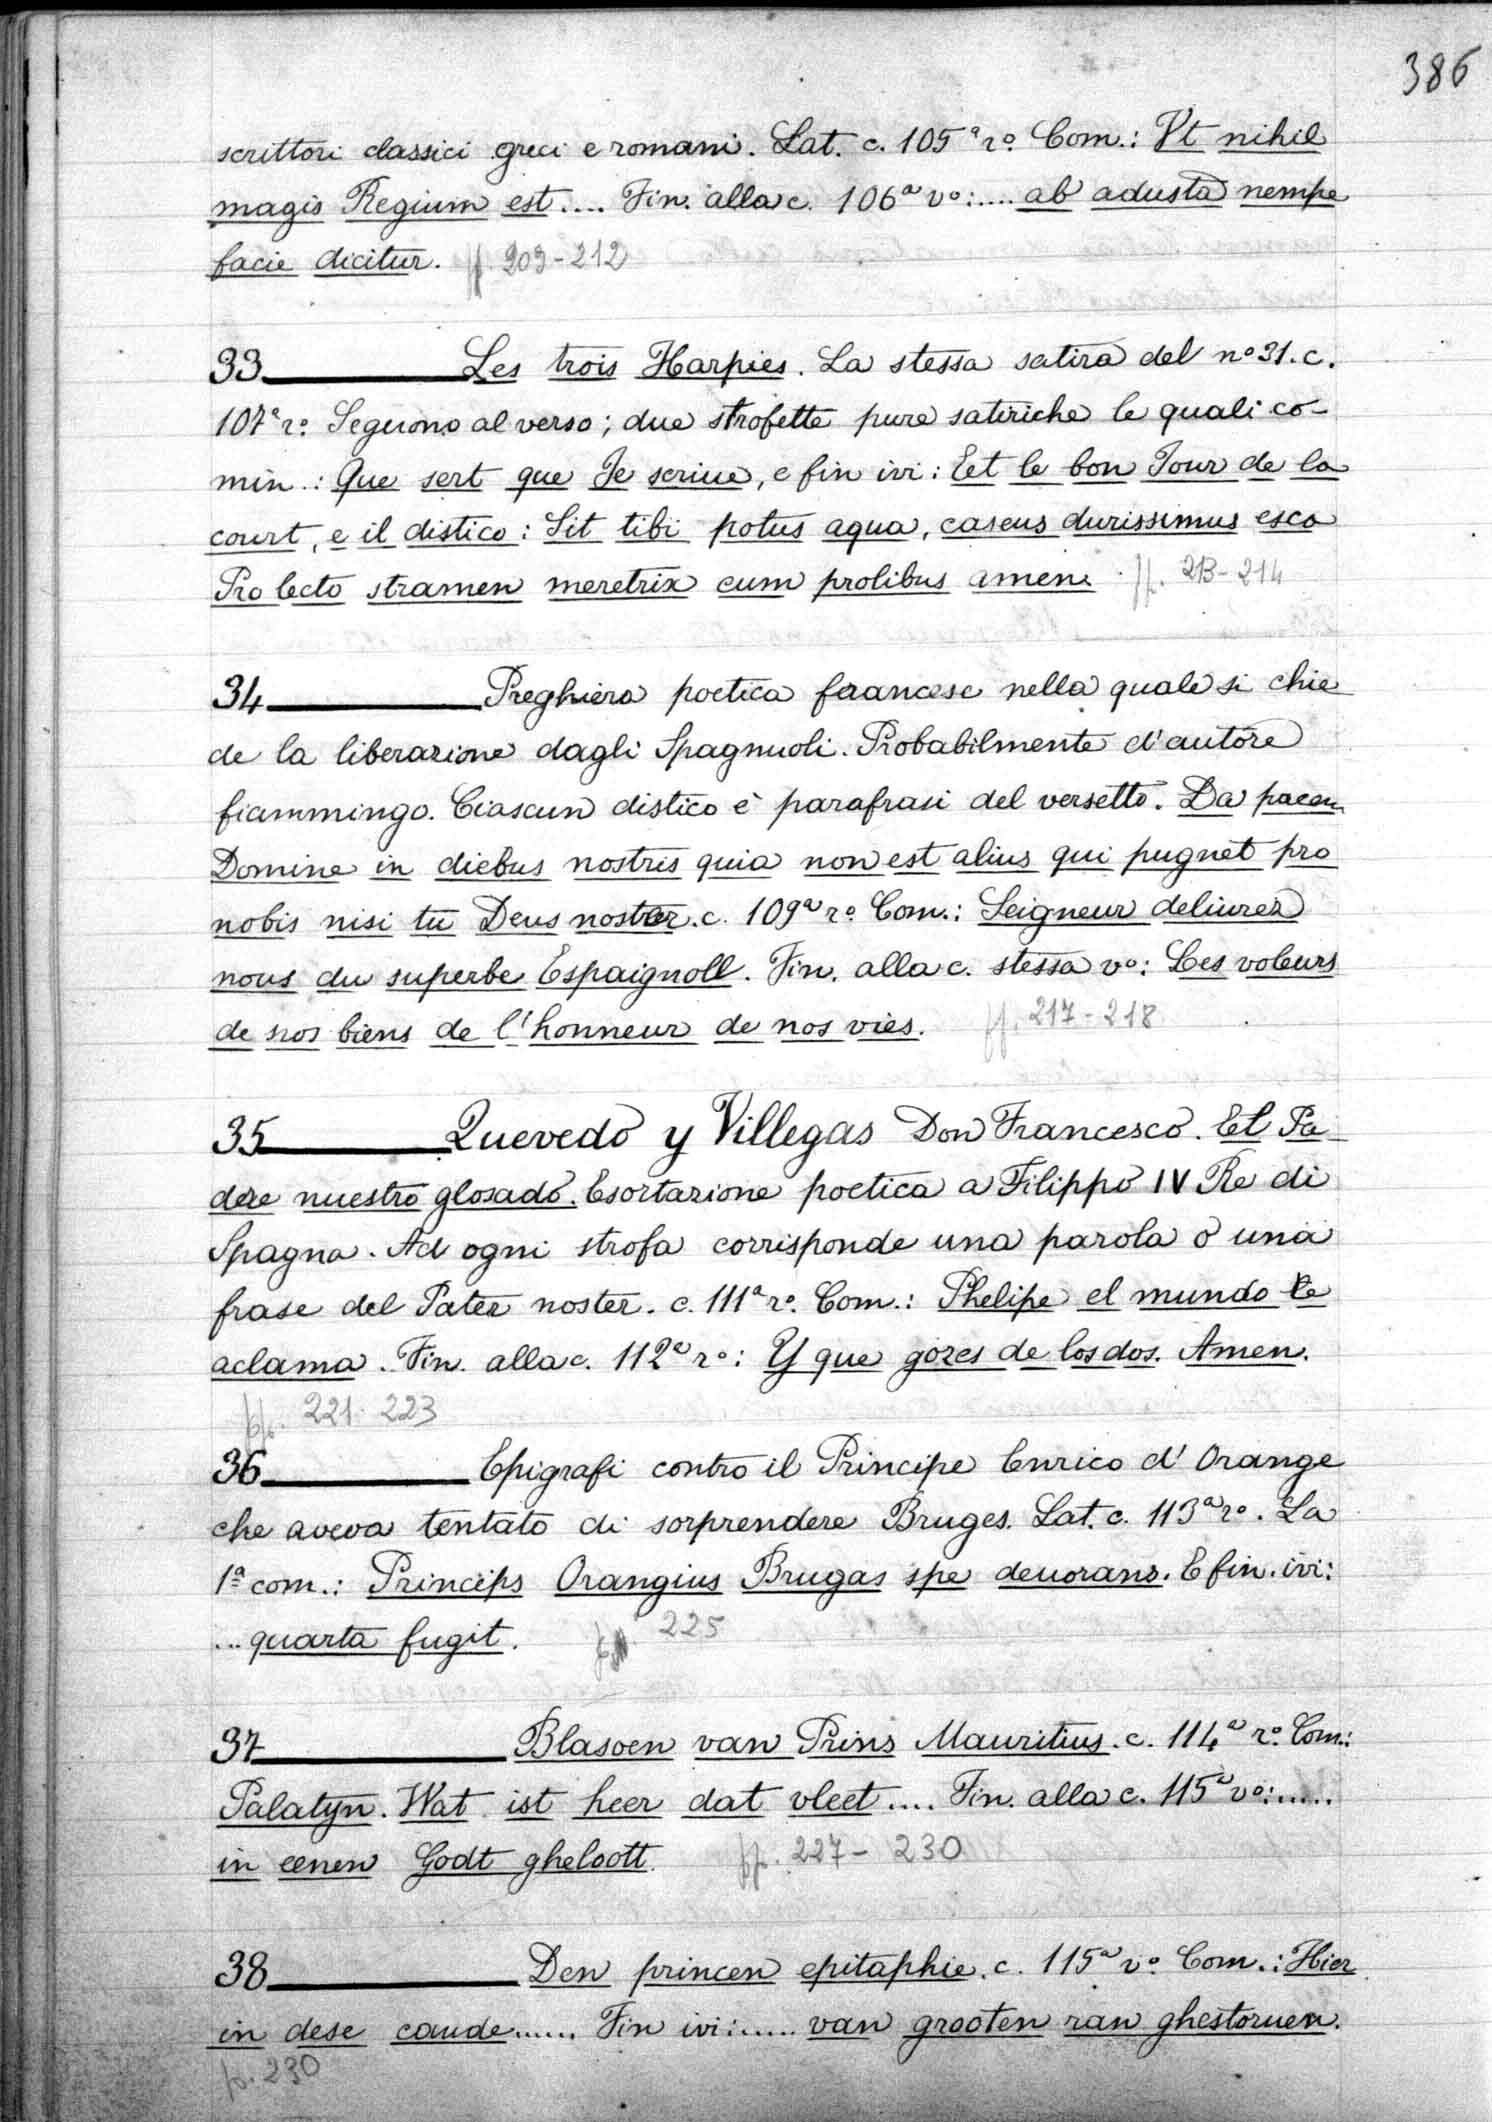 386
scrittori classici greci e romani. Lat. c. 105ª rº. Com.: Vt nihil
magis Regium est.... Fin. alla c. 106ª vº:.... ab adusta nempe
facie dicitur. ff. 209-212
33 Les trois Harpies. La stessa satira del nº 31. c.
107ª rº. Seguono al verso; due strofette pure satiriche le quali co-
min.: Que sert que Je scriue, e fin ivi: Eet le bon Jour de la
court, e il distico: Sit tibi potus aqua, caseus durissimus esca
Pro lecto stramen meretrix cum prolibus amen. ff. 213-214
34 Preghiera poetica francese nella quale si chie
de la liberazione dagli Spagnuoli. Probabilmente d'autore
fiammingo. Ciascun distico è parafrasi del versetto. Da pacem
Domine in diebus nostris quia non est alius qui pugnet pro
nobis nisi tu Deus noster. c. 109ª rº. Com.: Seigneur deliurez
nous du superbe Espaignoll. Fin. alla c. stessa vº: Les voleurs
de nos biens de l'honneur de nos vies. ff. 217-218
35 Quevedo y Villegas Don Francesco. El Pa-
dre nuestro glosado. Esortazione poetica a Filippo IV Re di
Spagna. Ad ogni strofa corrisponde una parola o una
frase del Pater noster. c. 111ª rº. Com.: Phelipe el mundo te
aclama. Fin. alla c. 112ª rº: Y que gozes de los dos. Amen.
pp. 221-223
36 Epigrafi contro il Principe Enrico d'Orange
che aveva tentato di sorprendere Bruges. Lat. c. 113ª rº. La
1ª com.: Princips Orangius Brugas spe deuorans. E fin. ivi:
... quarta fugit. 225
37 Blasoen van Prins Mauritius. c. 114ª rº. Com.:
Palatyn. Wat ist heer dat vleet.... Fin. alla c. 115ª vº:.....
in eenen Godt gheloott. pp. 227-230
38 Den princen epitaphie. c. 115ª vº. Com.: Hier
in dese caude...... Fin ivi:..... van grooten ran ghestoruen.
p. 230